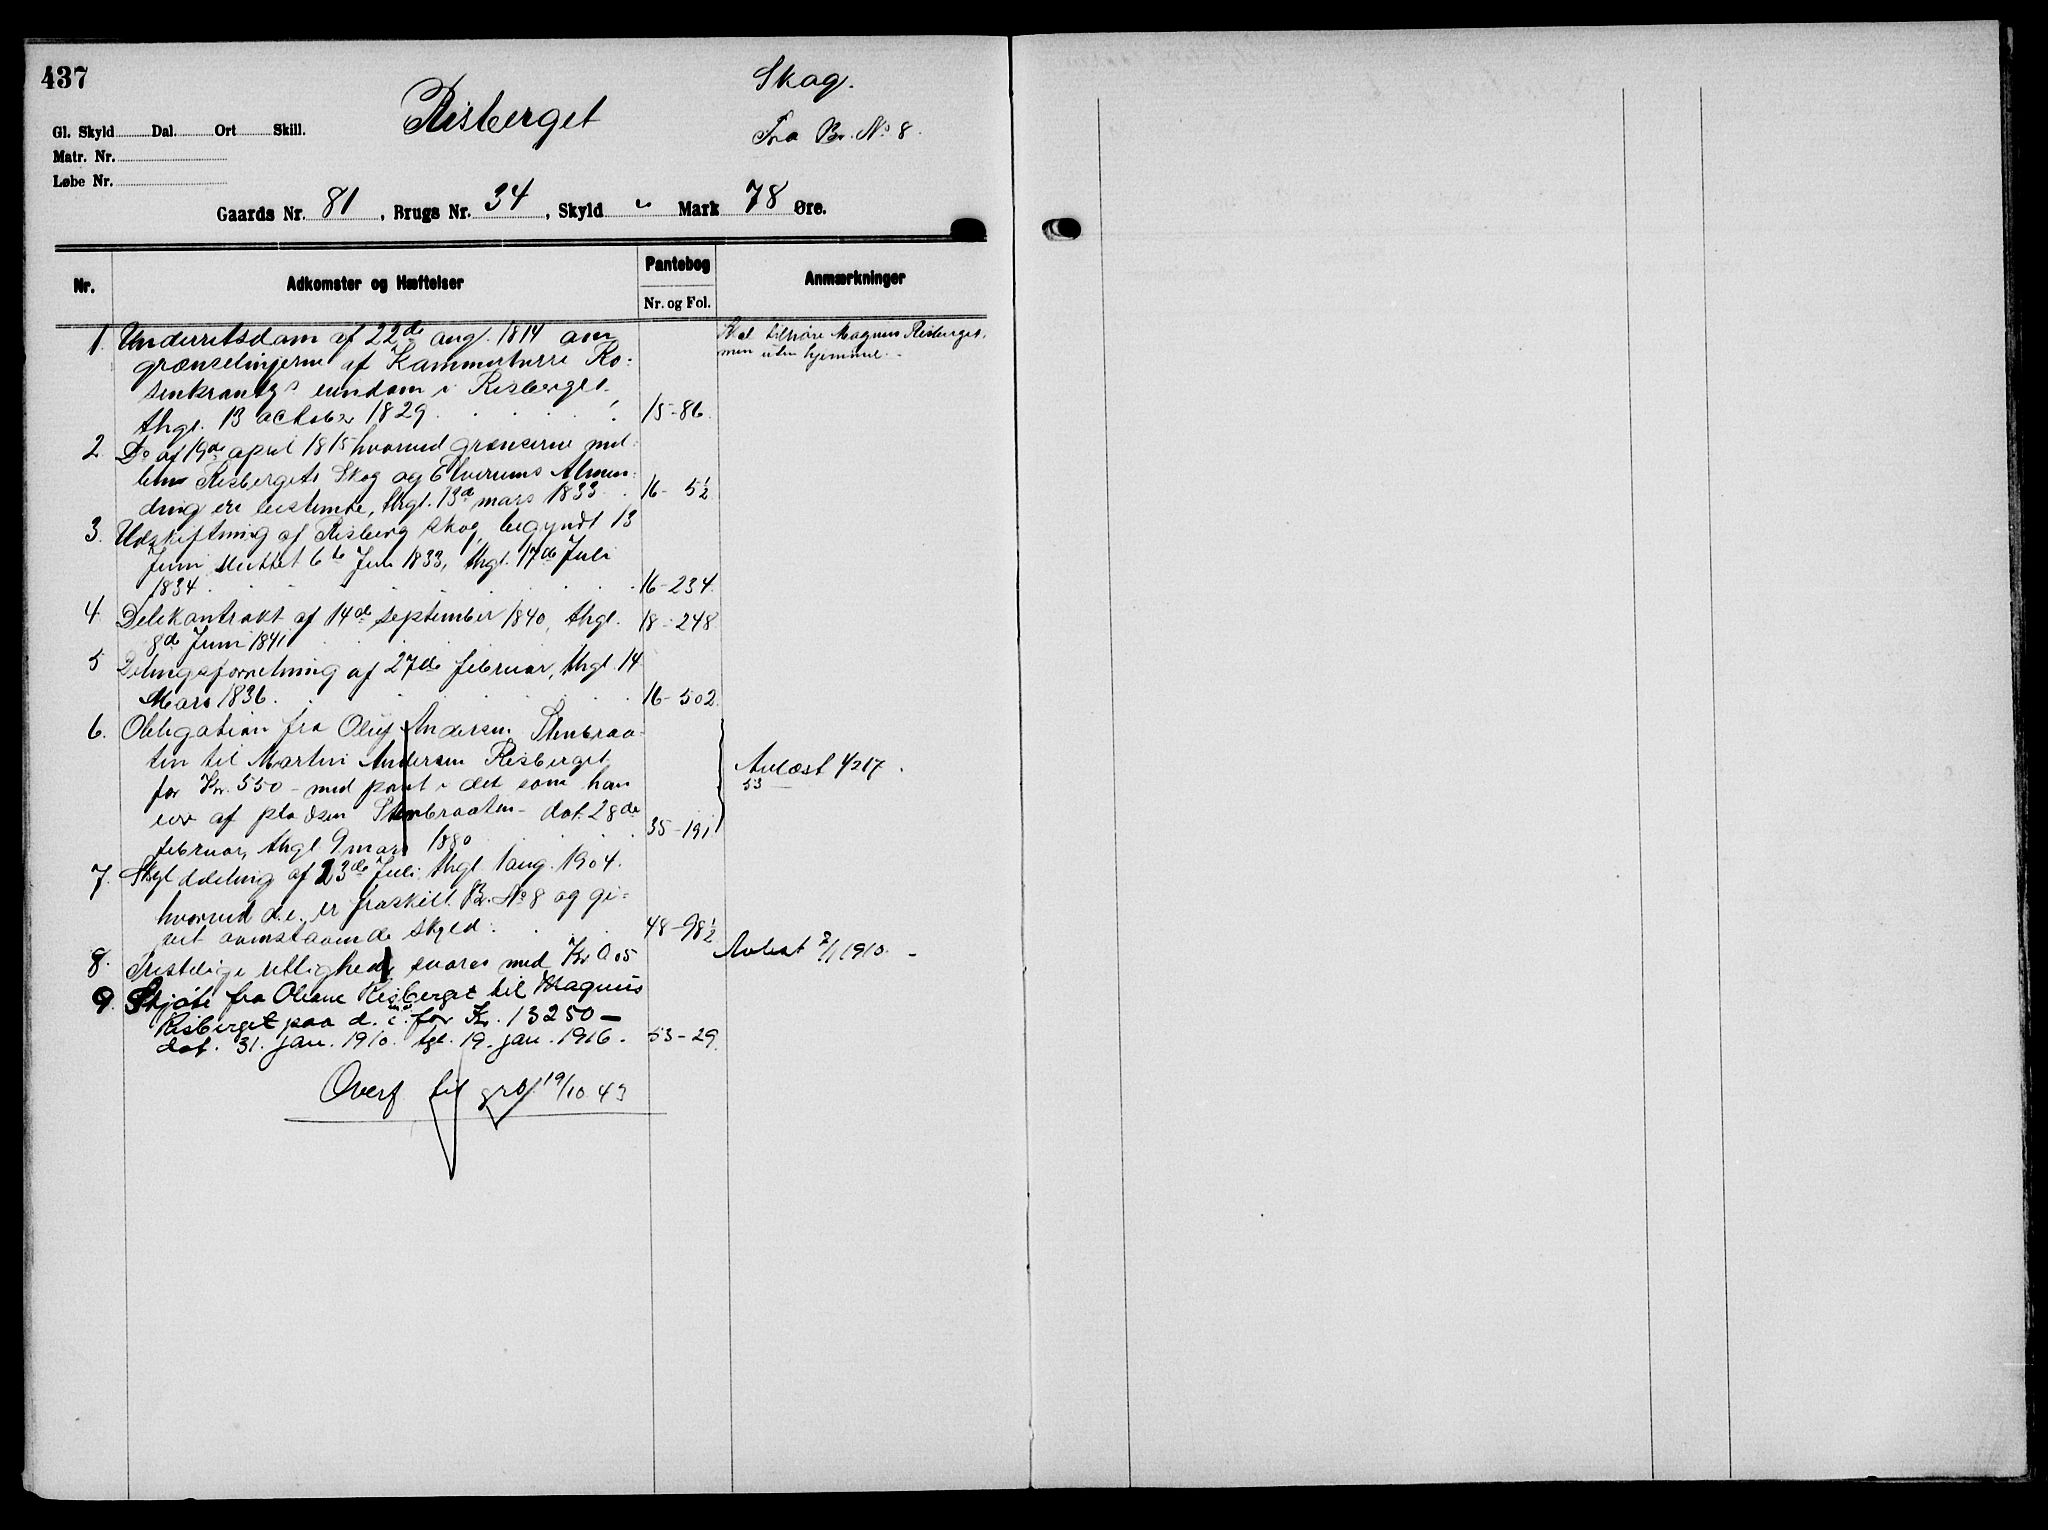 437
Risberget
Skog.
Fra Br. No 8.
Gl. Skyld Dal. Ort Skill.
Matr. Nr.
Løbe Nr.
Gaards Nr. 81, Brugs Nr. 34, Skyld " Mark 78 Øre.
Nr. Adkomster og Hæftelser Pantebog Nr. og Fol. Anmærkninger
1. Underretsdom af 22de aug. 1814 om Skal tilhøre Magnus Risberget,
grænselinjerne af Kammerherre Ro- men uten hjemmel.
senkrantz's eiendom i Risberget,
thgl. 13 october 1829. 15-86.
2. Do af 19de april 1815 hvorved grænserne mel-
lem Risbergets Skog og Elverums Almen-
ding er bestemte, thgl. 13de mars 1833. 16- 5½
3. Udskiftning af Risberg skog, begyndt 13
Juni sluttet 6te Juli 1833, thgl. 17de Juli
1834. 16-234.
4. Delekontrakt af 14de september 1840, thgl. 18-248.
8de Juni 1841
5 Delingsforretning af 27de februar, thgl. 14
Mars 1836. 16-502.
6. Obligation fra Oluf Andersen Stenbraa-
ten til Martin Andersen Risberget
for Kr. 550 - med pant i det som han Avlæst 4/2 17.
53
eier af pladsen Stenbraaten - dat. 28de
februar, thgl 9 mars 1880 35-191
7. Skylddeling af 23de Juli thgl 1 aug. 1904.
hvorved d.e. er fraskilt Br. No 8 og gi-
vet ovenstaaende skyld. 48-98½
8. Geistlige rettigheder svares med Kr. 0.05 Avlæst 7/1 1910. -
9. Skjøte fra Oleane Risberget til Magnus
Risberget paa d. e. for Kr. 13250 —
dat. 31. jan. 1910. tgl. 19. jan. 1916. 53-29.
Overf til grb. 19/10 43